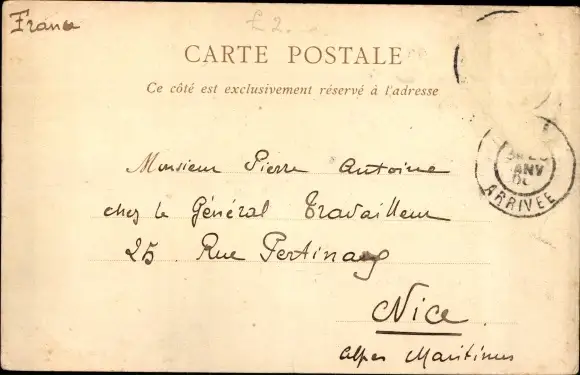 France
£2.
CARTE POSTALE
Ce côté est exclusivement réservé à l'adresse
ANV
ARRIVÉE
Monsieur Pierre Antoine
chez le Général Travailleur
25 Rue Pertinax
Nice
Alpes Maritimes